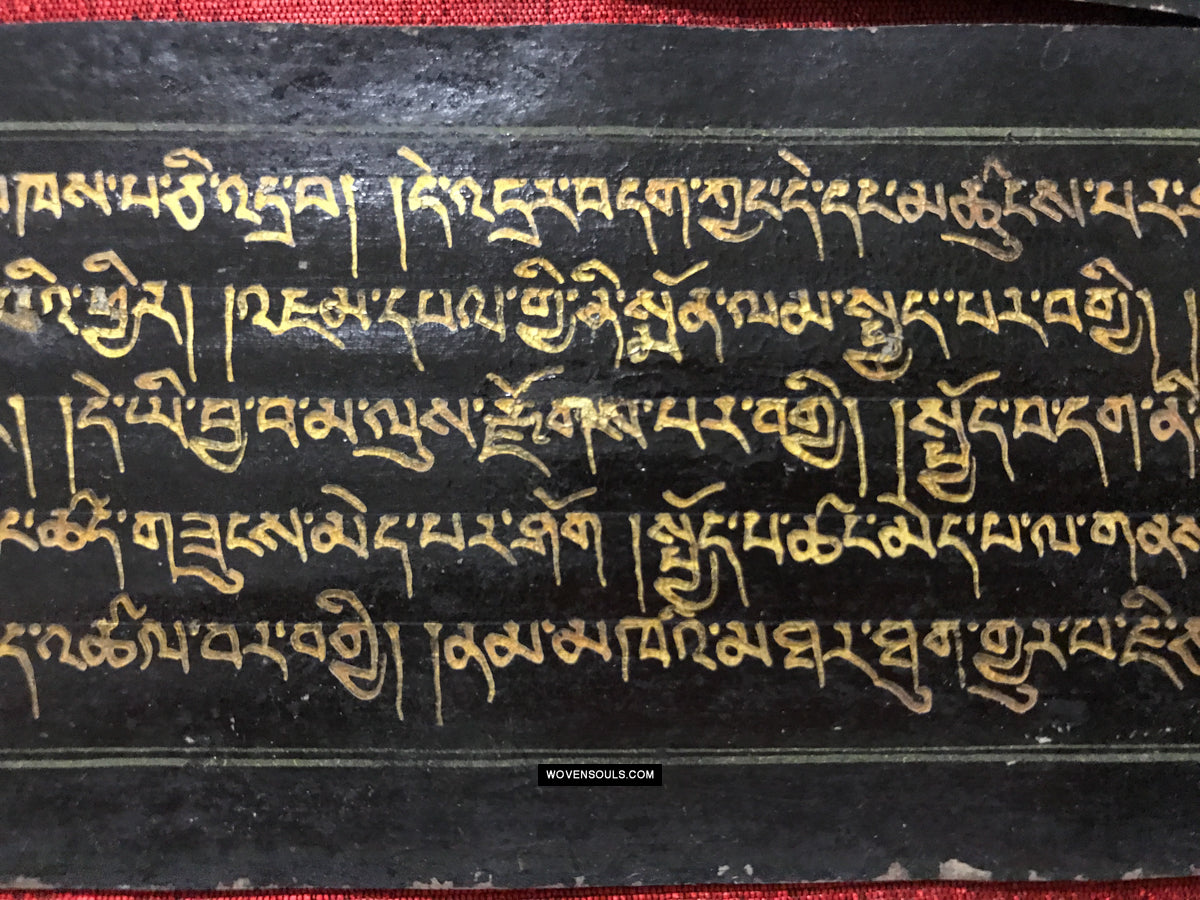 ཁས་པ་ཅི་འདྲ་བ། །དེ་འདྲར་བདག་ཀྱང་དེ་དང་མཚུངས་པར་
བའི་ཕྱིར། །འཇམ་དཔལ་གྱི་ནི་སྨོན་ལམ་སྤྱད་པར་བགྱི། །
། །དེ་ཡི་བྱ་བ་མ་ལུས་རྫོགས་པར་བགྱི། །སྤྱོད་བ་དག་ནི
ང་ཚད་གཟུངས་མེད་པར་ཤོག །སྤྱོད་པ་ཚད་མེད་པ་ལ་གནས
ད་འཚལ་བར་བགྱི། །ནམ་མཁའི་མཐར་ཐུག་གྱུར་པ་ཇི་
WOVENSOULS.COM